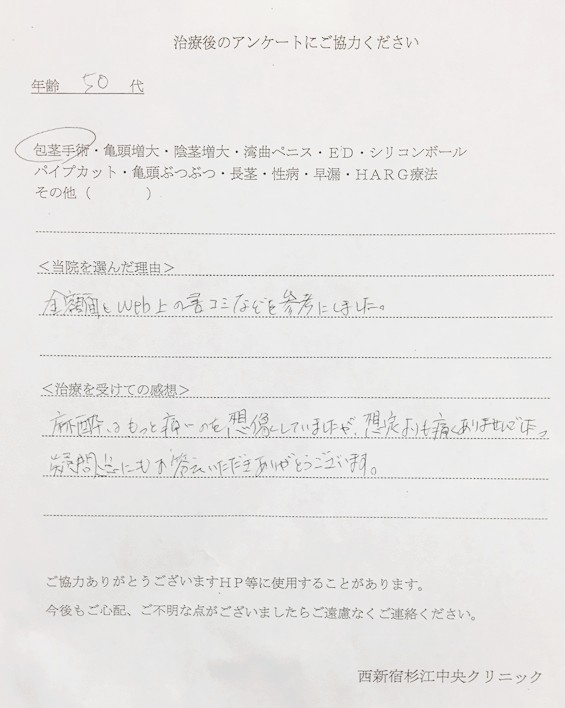 治療後のアンケートにご協力ください
年齢 50 代
包茎手術・亀頭増大・陰茎増大・湾曲ペニス・ED・シリコンボール
パイプカット・亀頭ぶつぶつ・長茎・性病・早漏・HARG療法
その他（　　　）
＜当院を選んだ理由＞
金額面とWeb上の口コミなどを参考にしました。
＜治療を受けての感想＞
麻酔はもっと痛いのを想像していましたが、想定よりも痛くありませんでした。
疑問点にもお答えいただきありがとうございます。
ご協力ありがとうございますHP等に使用することがあります。
今後もご心配、ご不明な点がございましたらご遠慮なくご連絡ください。
西新宿杉江中央クリニック